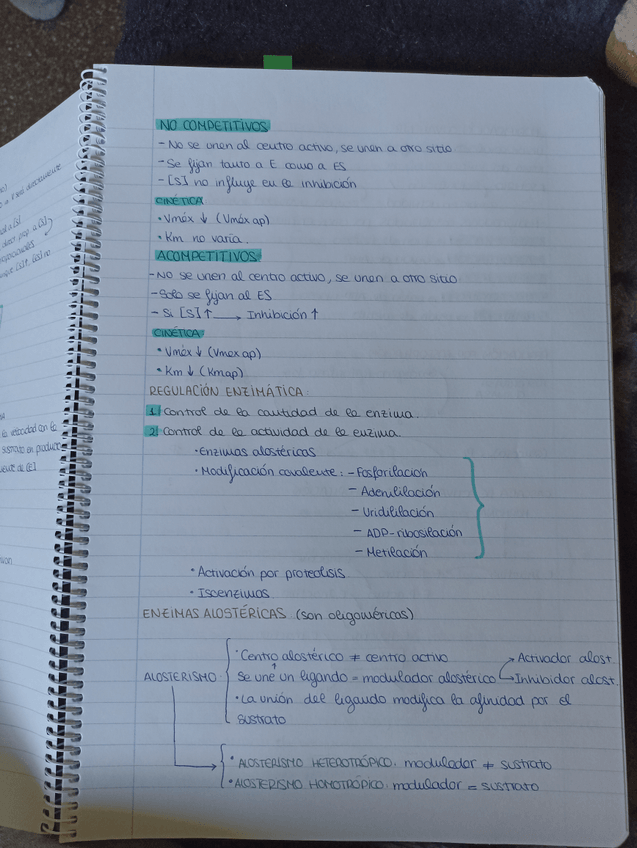 NO COMPETITIVOS
- No se unen al centro activo, se unen a otro sitio
- Se fijan tanto a E como a ES
- [S] no influye en la inhibición
CINÉTICA
• Vmáx ↓ (Vmáx ap)
• Km no varía.
ACOMPETITIVOS
- No se unen al centro activo, se unen a otro sitio
- Solo se fijan al ES
- Si [S] ↑ → Inhibición ↑
CINÉTICA
• Vmáx ↓ (Vmax ap)
• Km ↓ (Kmap)
REGULACIÓN ENZIMÁTICA
1) Control de la cantidad de la enzima.
2) Control de la actividad de la enzima.
• Enzimas alostéricas
• Modificación covalente: - Fosforilación
- Adenililación
- Uridililación
- ADP-ribosilación
- Metilación
• Activación por proteolisis
• Isoenzimas
ENZIMAS ALOSTÉRICAS (son oligoméricas)
• Centro alostérico ≠ centro activo → Activador alost.
ALOSTERISMO Se une un ligando = modulador alostérico → Inhibidor alost.
• La unión del ligando modifica la afinidad por el
sustrato
• ALOSTERISMO HETEROTRÓPICO: modulador ≠ sustrato
• ALOSTERISMO HOMOTRÓPICO: modulador = sustrato
la velocidad con la
sustrato en producto